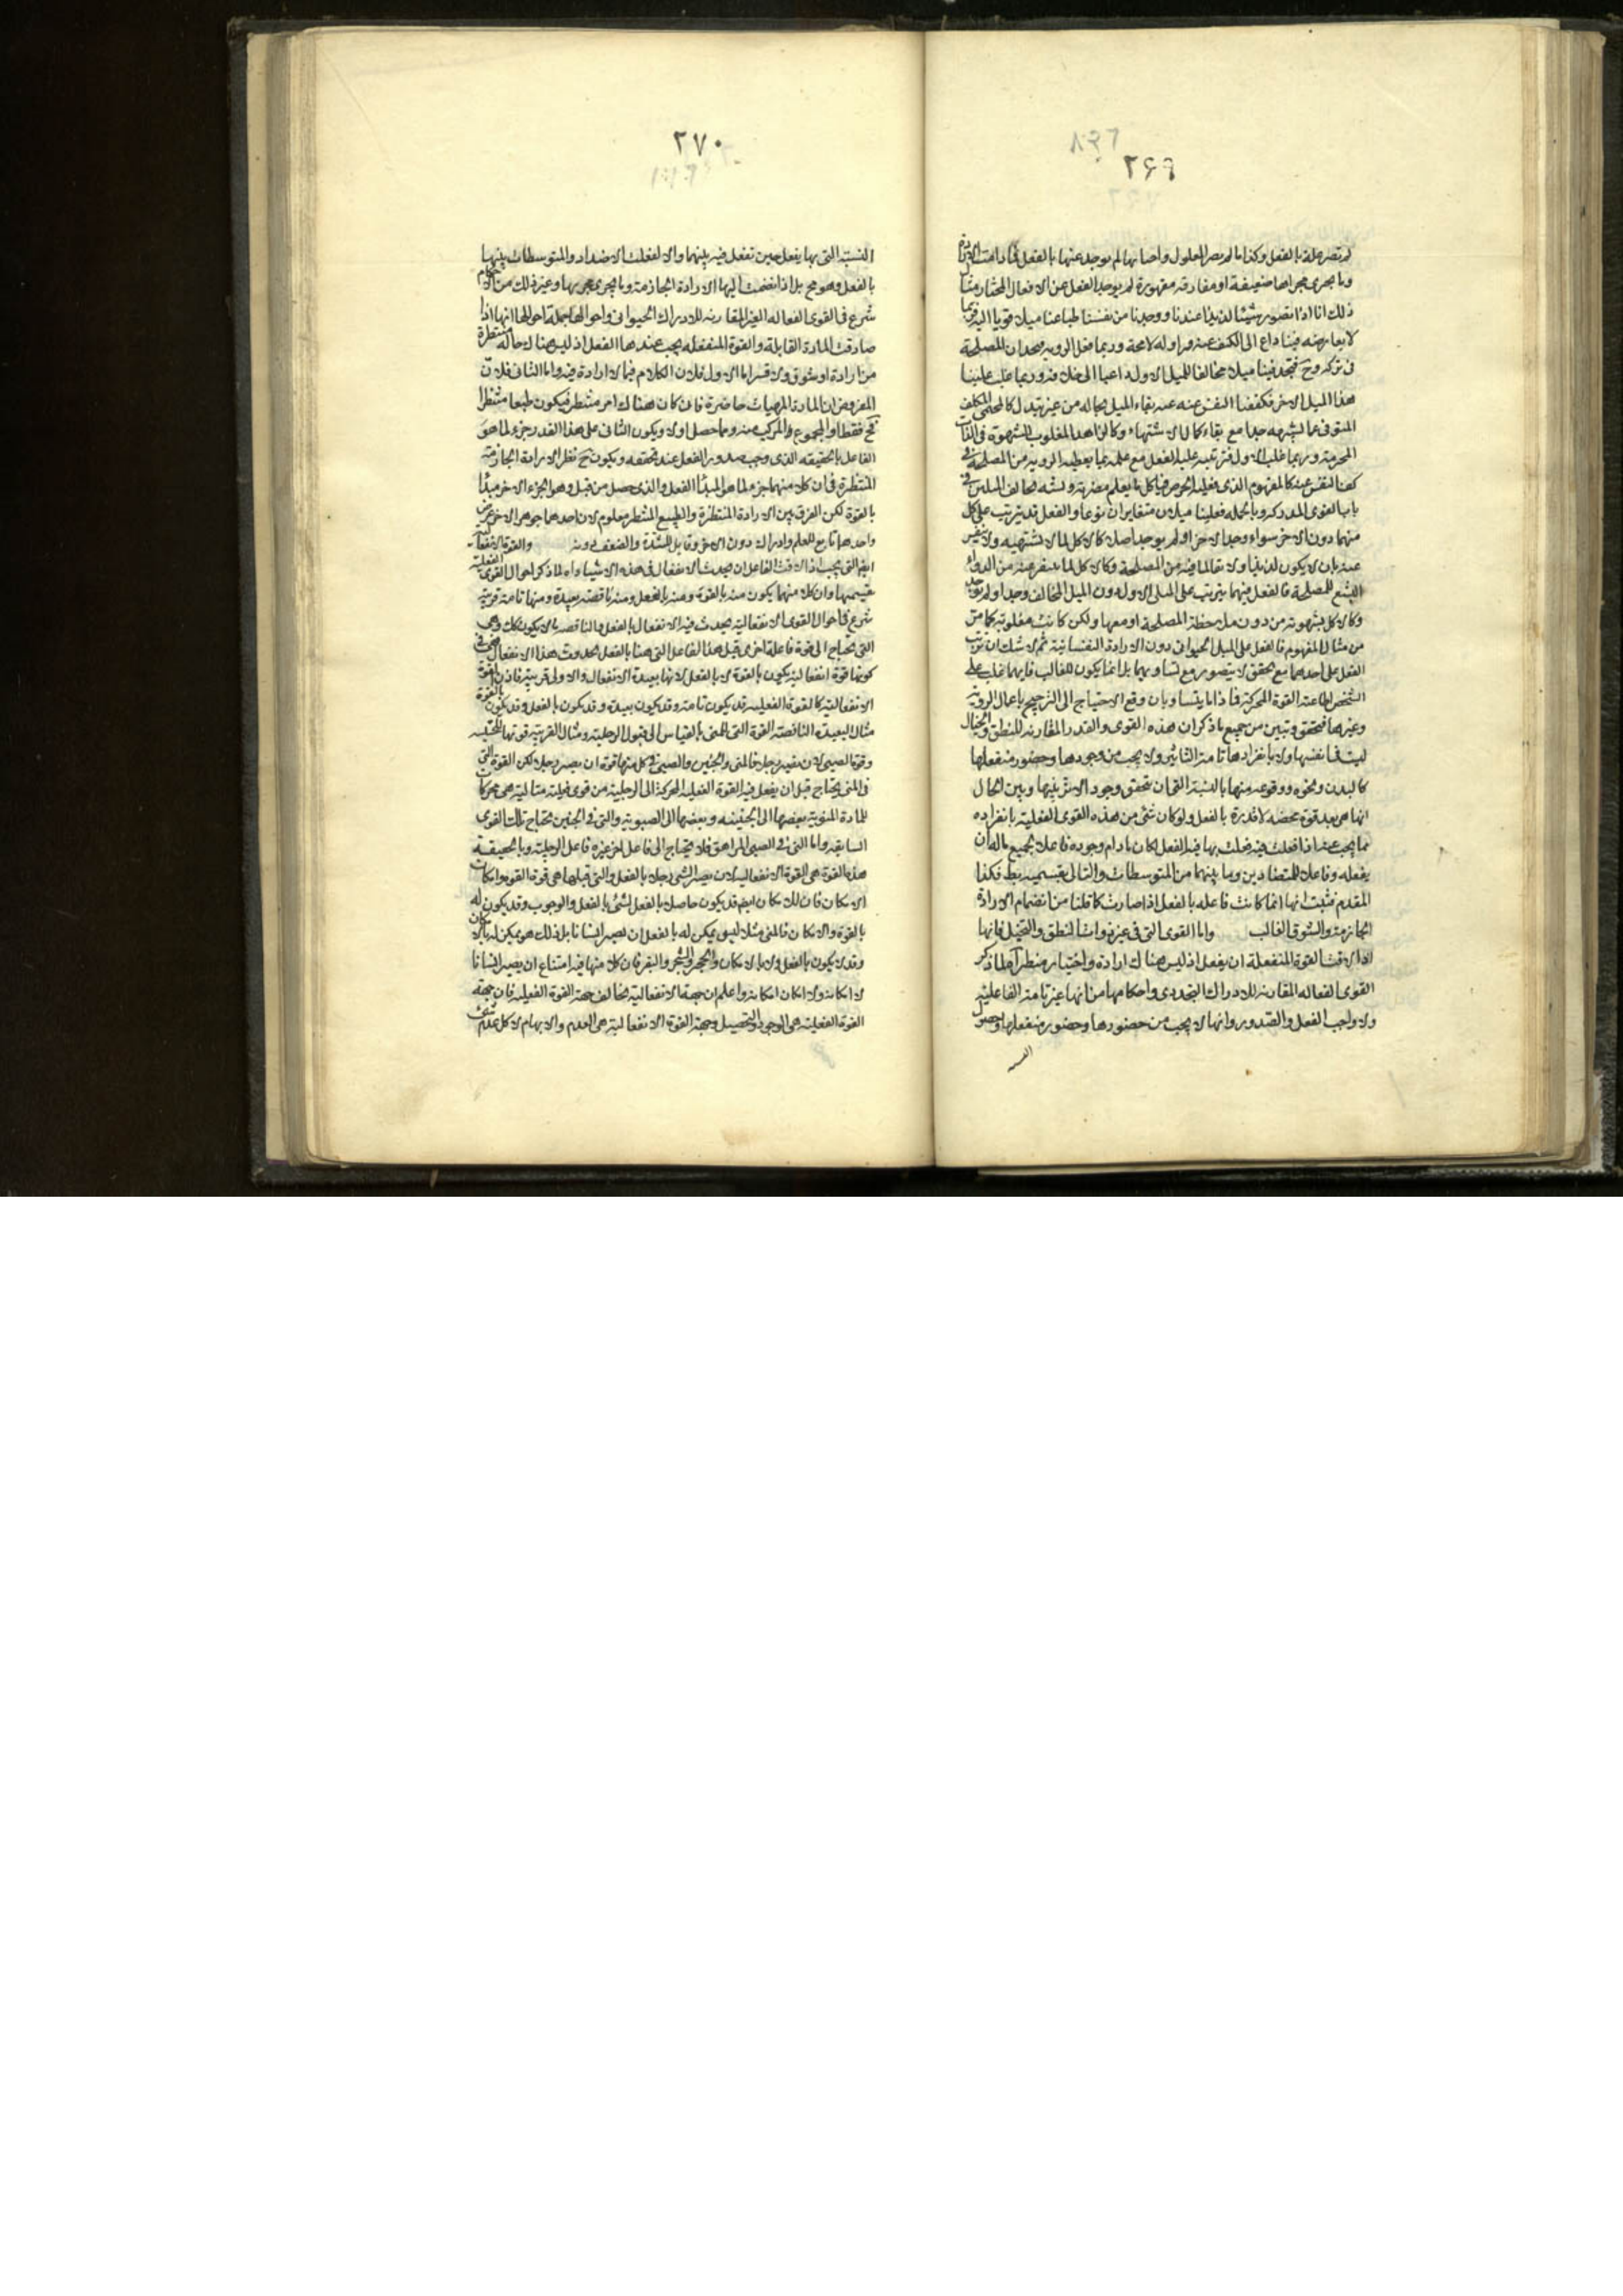 ٢۶٩
لم تصر علة بالفعل وكذا ما لم يصر المعلول واصابها لم يوجد عنها بالفعل فما دامت الارادة
وما يجرى مجراها ضعيفة او مفارقة مقهورة لم يوجد الفعل من الافعال المختار منا
ذلك انا اذا نتصور شيئا لذيذا عندنا ووجدنا من نفسنا طباعنا ميلا قويا اليه فربما
لا يعارضه فينا داع الى الكف عنه مزاولة لامحة وربما فعل الروية يحدان المصلحة
فى تركه وح فتجد فينا ميلا مخالفا للميل الاول داعيا الى خلافه وربما غلب علينا
هذا الميل الاخر فكففنا النفس عنه عند بقاء الميل بحاله من غير تبدل كالمحتمى المكلف
المتوقى عما يشهيه جدا مع بقاء كمال الاشتهاء وكالزاهد المغلوب الشهوة فى اللذات
المحرمة وربما غلب الاول فترتب عليه الفعل مع علمه بما يعطيه الروية من المصلحة فى
كف النفس عنه كالمفهوم الذى فعليه الحرص فياكل ما يعلم مضرته
بانها القوى المدركة وبالجملة فعلينا ميلان متغايران نوعا والفعل قد يترتب على كل
منهما دون الاخر سواء وجد الاخر او لم يوجد اصلا كالاكل لما لا تشتهيه ولا يتنفر
عنه بان لا يكون لذيذا ولا تقالما فيه من المصلحة وكالاكل لما يتنفر عنه من الدواء
البشع للمصلحة فالفعل فيهما يترتب على الميل الاول دون الميل المخالف وجد او لم يوجد
وكالاكل بشهوته من دون ملاحظة المصلحة او معها ولكن كانت مغلوبة كما مر
من مثال المفهوم فالفعل على الميل الحيوانى دون الارادة النفسانية ثم لا شك ان ترتب
الفعل على احدهما مع تحقق لا يتصور مع تساويهما بل انما يكون للغالب فايهما غلب على
الشخص اطاعته القوة المحركة فاذا ما يتساويان وقع الاحتياج الى الترجيح باعمال الروية
وغيرها فتحقق وتبين من جميع ما ذكر ان هذه القوى والقدر المقارنة للنطق والخيال
ليست فى نفسها ولا بانفرادها تامة التاثير ولا يجب من وجودها وحضور منفعلها
كالبدن ونحوه ووقوعه منها بالنسبة التى ان تتحقق وجود الاثر بينها وبين الحال
انها هى بعد قوة محضة لا قدرة بالفعل ولو كان شئ من هذه القوى الفعلية بانفراده
مما يجب عنه اذا فعلت فيه فعلت بها فيه الفعل لكان ما دام وجوده فاعلا بجميع ما له ان
يفعله وفاعلا للمتضادين وما بينهما من المتوسطات والتالى بقسميه بط فكذا
المقدم فثبت انها انما كانت فاعلة بالفعل اذا صارت كما قلنا من انضمام الارادة
الجازمة والشوق الغالب واما القوى التى فى غير ذوات النطق والتخيل فانها
اذا لاقت القوة المنفعلة ان يفعل اذ ليس هناك ارادة واختيار منتظر لما ذكر
القوى الفعالة المقارنة للادراك التجددى واحكامها من انها غير تامة الفاعلية
ولا واجب الفعل والصدور وانها لا يجب من حضورها وحضور منفعلها وحصول
النسبة
٢٧٠
النسبة التى بها يفعل حين تفعل فيه بينهما والا لفعلت الاضداد والمتوسطات بينها
بالفعل وهو مح بل اذا انضمت اليها الارادة الجازمة وما يجرى مجريها وغير ذلك من الاحكام
شرع فى القوى الفعالة الغير المقارنة للادراك الحيوانى واحوالها جملة احوالها انها اذا
صادفت المادة القابلة والقوة المنفعلة يجب عندها الفعل اذ ليس هناك حالة منتظرة
من ارادة او شوق ولا قسر اما الاول فلان الكلام فيما لا ارادة فيه واما الثانى فلان
المفروض ان المادة المهيات حاضرة فان كان هناك امر منتظر فيكون طبعا منتظرا
فح فقط او المجموع والمركب منه ومما حصل اولا ويكون الثانى على هذا القدر جزء لما هو
الفاعل بالحقيقة الذى وجب صدور الفعل عند تحققه ويكون ح نظر الارادة الجازمة
المنتظرة فى ان كلا منهما جزء لما هو المبدأ الفعل والذى حصل من قبل وهو الجزء الاخر مبدأ
بالقوة لكن الفرق بين الارادة المنتظرة والطبع المنتظر معلوم لان احدهما جوهر الاخر عرض
واحدهما تابع للعلم وادراك دون الاخر وقابل للشدة والضعف دونه والقوة الانفعالية
ايضا التى يجب اذا لاقت الفاعل ان يحدث الانفعال فى هذه الاشياء لما ذكر احوال القوى الفعلية
تقسيمها وان كلا منهما يكون منه بالقوة ومنه بالفعل ومنه ناقصة بعيدة ومنها تامة قريبة
شرع فى احوال القوى الانفعالية يحدث فيه الانفعال بالفعل والناقصة ما لا يكون كك وهى
التى تحتاج الى قوة فاعلة اخرى قبل هذا الفاعل التى هنا بالفعل لحدوث هذا الانفعال فهى فى
كونها قوة انفعالية يكون بالقوة لا بالفعل لانها بعيدة الانفعال والاولى قريبة فاذن القوة
الانفعالية كالقوة الفعلية قد يكون تامة وقد يكون بعيدة وقد يكون بالفعل وقد يكون بالقوة
مثال البعيدة الناقصة القوة التى للمنى بالقياس الى قبول الرجلية ومثال القريبة قوتها للجنينية
وقوة الصبى لان يصير رجلا فالمنى والجنين والصبى فى كل منها قوة ان يصير رجلا لكن القوة التى
فى المنى يحتاج قبل ان يفعل فيه القوة الفعلية المحركة الى الرجلية من قوى فعلية متتالية هى محركات
للمادة المنوية بعضها الى الجنينية وبعضها الى الصبوية والتى فى الجنين يحتاج تلك القوى
السابقة واما التى فى الصبى المراهق فلا يحتاج الى فاعل اخر غيره فاعل الرجلية وبالحقيقة
هذه القوة هى القوة الانفعالية لان يصير الشئ رجلا بالفعل والتى قبلها هى قوة القوة وامكان
الامكان فان للامكان ايضا قد يكون حاصلا بالفعل لشئ بالفعل والوجوب وقد يكون له
بالقوة والامكان فالمنى مثلا ليس يمكن له بالفعل ان يصير انسانا بل ذلك هو يمكن له بالامكان
وقد لا يكون بالفعل ولا بالامكان والحجر والشجر والبقر فان كلا منها فيه امتناع ان يصير انسانا
لا امكانه ولا امكان امكانه واعلم ان جهة الانفعالية مخالف جهة القوة الفعلية فان جهة
القوة الفعلية هى الوجود والتحصيل وجهة القوة الانفعالية هى العدم والابهام لا كل عدم